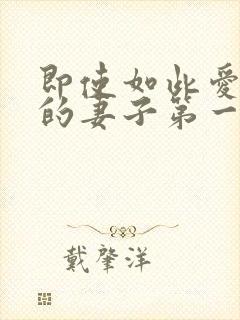 即使如此爱
的妻子第一
戴肇洋